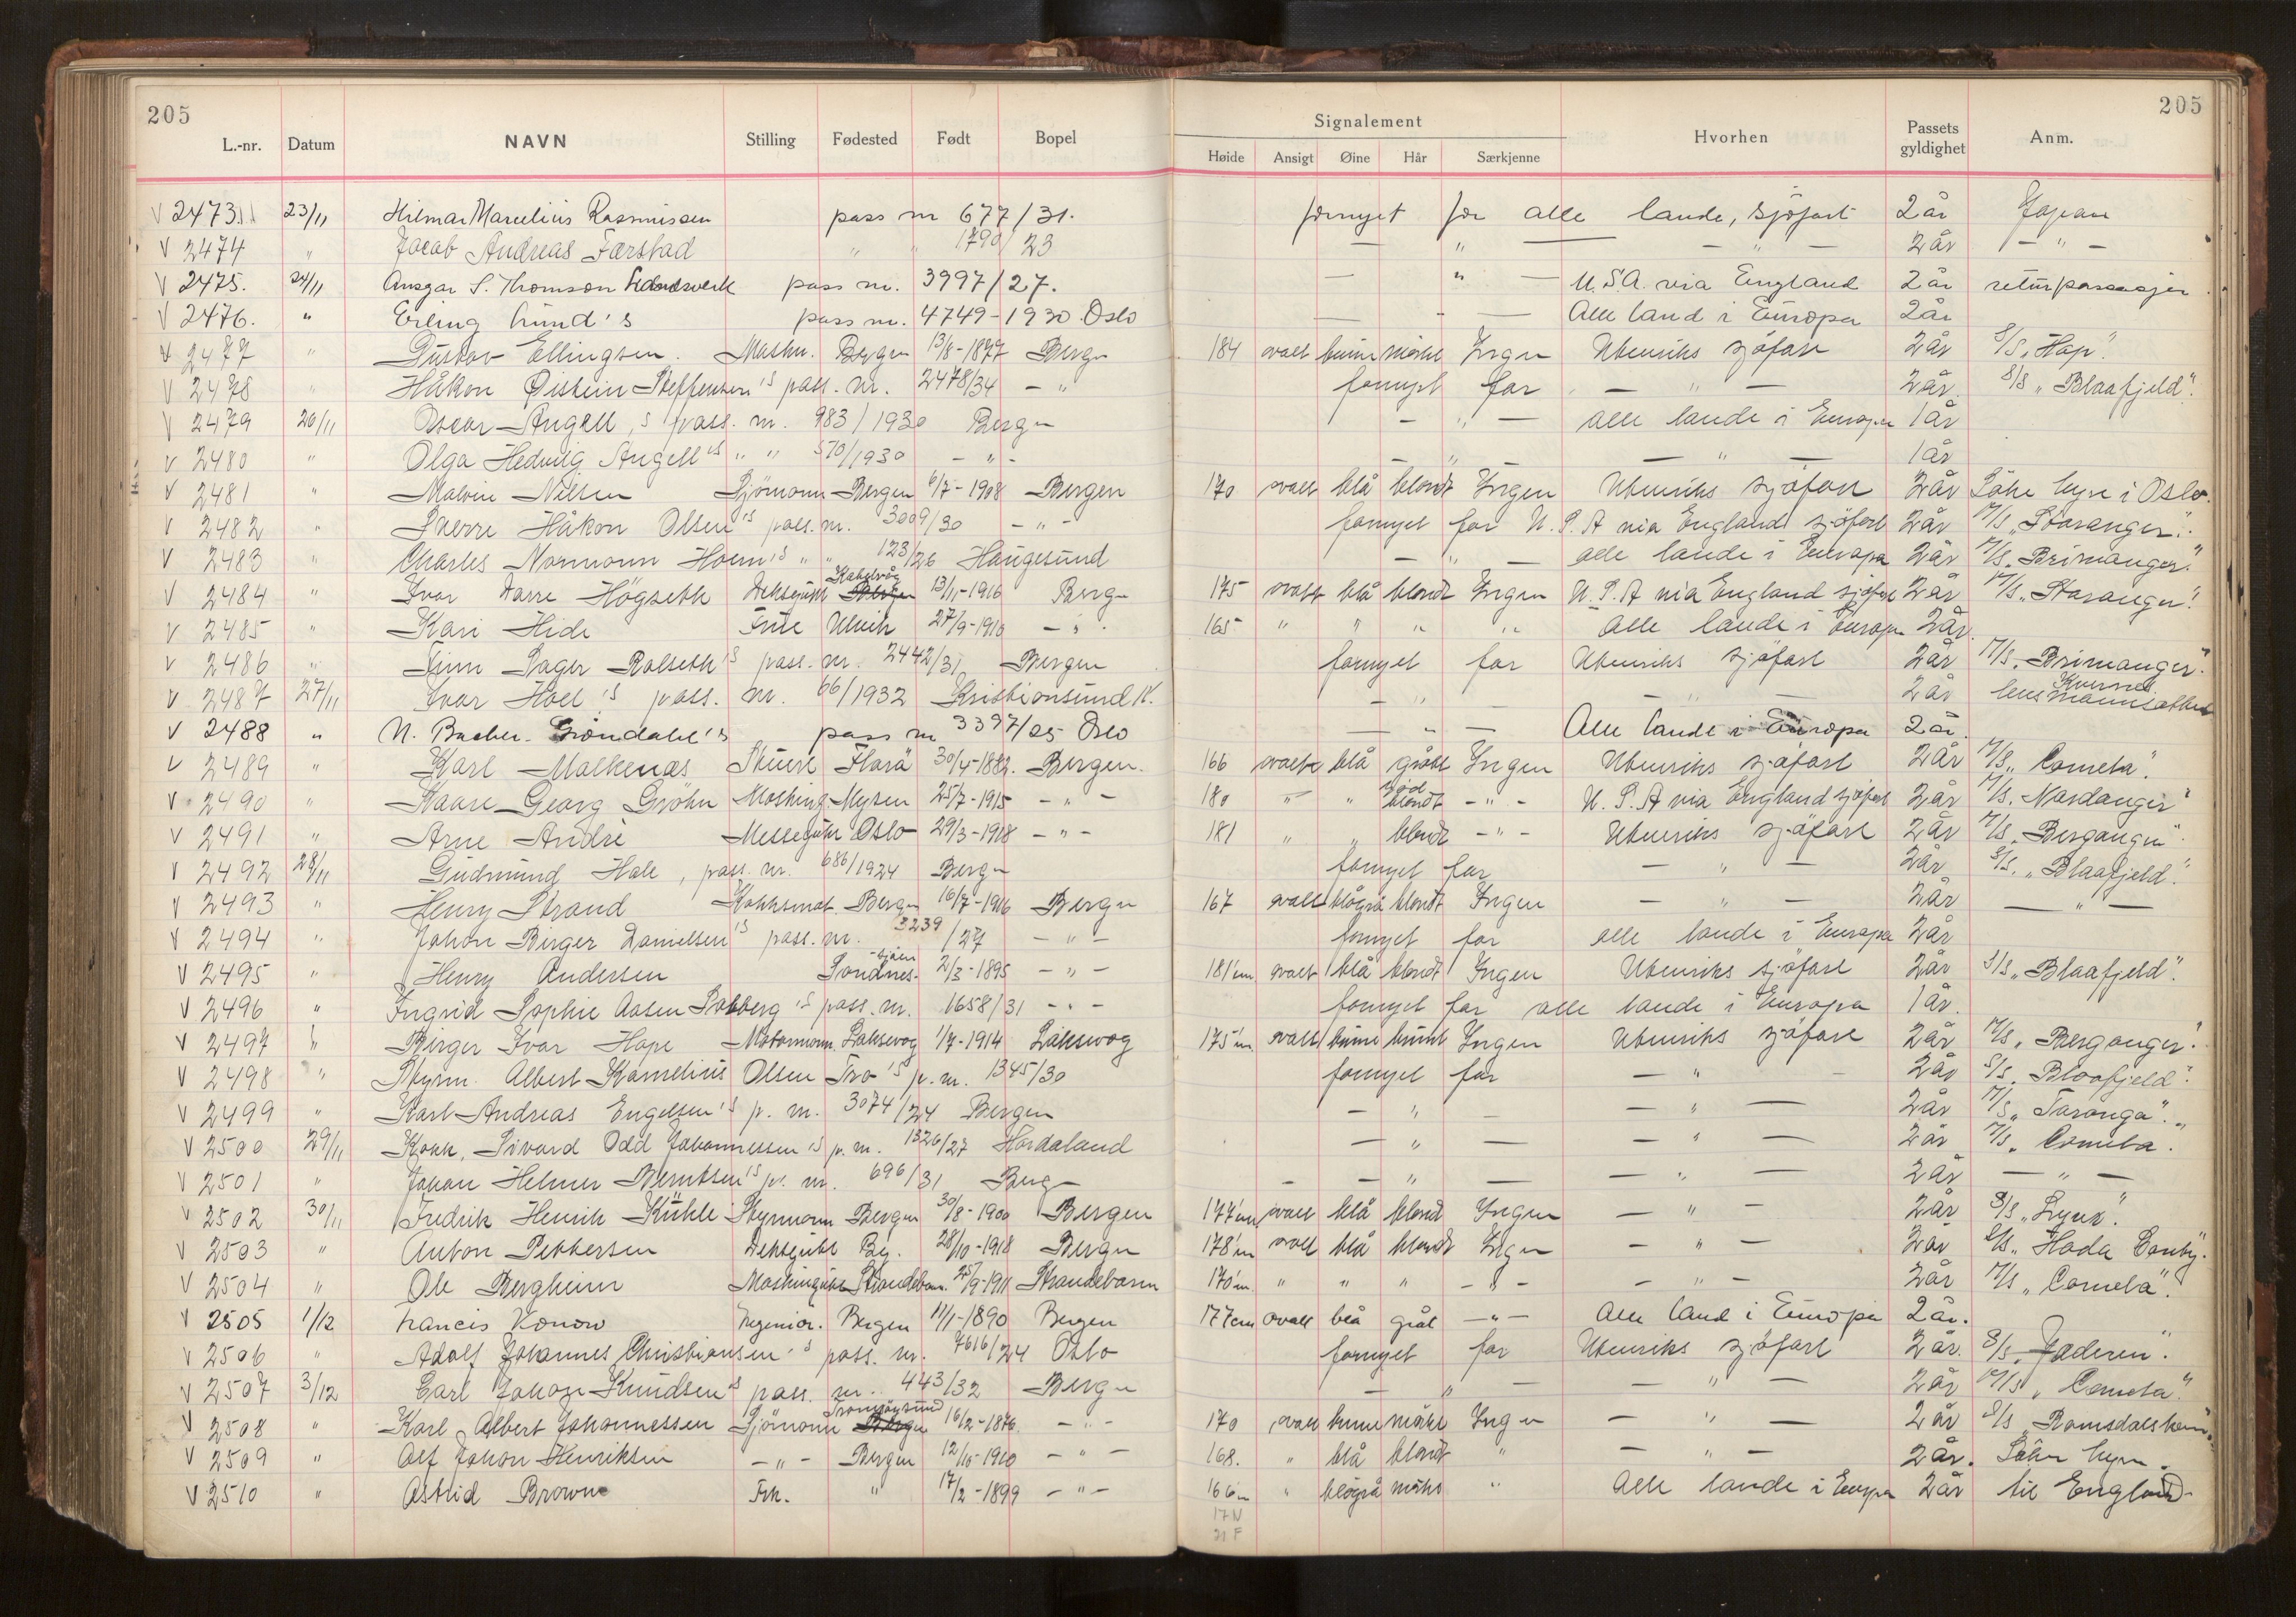 205 205
L.-nr. Datum NAVN Stilling Fødested Født Bopel Signalement Hvorhen Passets gyldighet Anm.
Høide Ansigt Øine Hår Særkjenne
V 2473 23/11 Hilmar Marcelius Rasmussen pass nr 677/31. fornyet for alle lande, sjøfart 2 år Japan
V 2474 " Jacob Andreas Færstad " " 1790/23 — " — — " — 2 år — " —
V 2475. 24/11 Ansgar S. Thomson pass nr. 3997/27. — " — U.S.A. via England 2 år returpassasjer
V 2476. " Erling Lund's pass nr. 4749-1930 Oslo — " — Alle land i Europa 2 år
V 2477 " Gustav Ellingsen. Maskn. Bergen 13/8-1877 Bergn 184 ovalt brune mørkt Ingen Utenriks sjøfart 2 år S/S "Hop".
V 2478 " Håkon Øistein Steffensen's pass. nr. 2478/34 — " fornyet for — " — 2 år. S/S "Blaafjeld".
V 2479 26/11 Oscar Angell's pass. nr. 983/1930 Bergn — " — alle lande i Europa 1 år
V 2480 " Olga Hedvig Angell's " " 570/1930 — " — — " — — " — 1 år
V 2481 " Malvin Nilsen Sjömann Bergen 6/7-1908 Bergen 170 ovalt blå blondt Ingen Utenriks sjøfart 2 år Söke hyre i Oslo.
V 2482 " Sverre Håkon Olsen's pass. nr. 3009/30 — " — fornyet for U.S.A via England sjöfart 2 år M/S "Staranger".
V 2483 " Charles Normann Hoem's " " 123/26 Haugesund — " — alle lande i Europa 2 år M/S "Brimanger."
V 2484 " Ivar Högseth Deksgutt Kabelvåg Bergen 13/11-1916 Bergn 175 ovalt blå blondt Ingen U.S.A via England sjöfart 2 år M/S "Staranger".
V 2485 " Kari Hide Frue Ulvik 27/9-1910 — " — 165 " " " " Alle lande i Europa 2 år.
V 2486 " Finn Rolseth's pass. nr. 2442/31 Bergen fornyet for Utenriks sjöfart 2 år M/S "Brimanger".
V 2487 27/11 Ivar Hoel's pass. nr. 66/1932 Kristiansund N. — " — — " — 2 år
V 2488 " N. Bacher-Gröndahl's pass nr 3397/25 Oslo — " — Alle lande i Europa 2 år.
V 2489 " Karl Malkenæs Stuert Florö 30/4-1882. Bergen. 166 ovalt blå grått Ingen Utenriks sjøfart 2 år M/S "Cometa".
V 2490 " Kaare Georg Gröhn Mysen 25/7-1915 — " — 180 " " blondt — " — U.S.A via England sjöfart 2 år M/S. Nordanger"
V 2491 " Arne André Messegutt Oslo 29/3-1918 — " — 181 " " blondt — " — Utenriks sjøfart 2 år M/S "Beranger".
V 2492 28/11 Gudmund Hale, pass. nr. 686/1924 Bergn fornyet for — " — 2 år S/S. "Blaafjeld".
V 2493 " Henry Strand Kokksmat. Bergn 16/7-1916 Bergn 167 ovalt blågrå blondt Ingen — " — 2 år — " —
V 2494 " Johan Birger Danielsen's pass. nr. 3239/27 — " — fornyet for alle lande i Europa 2 år
V 2495 " Henry Andersen Sandnessjöen 2/3-1895 — " — 181 cm. ovalt blå blondt Ingen Utenriks sjøfart 2 år S/S "Blaafjeld".
V 2496 " Ingrid Sophie Aasen 's pass. nr. 1658/31 — " — fornyet for alle lande i Europa 1 år.
V 2497 " Birger Ivar Hope Motormann. Laksevog 1/7-1914 Laksevog 175 cm. ovalt brune brunt Ingen Utenriks sjøfart 2 år M/S "Beranger".
V 2498 " Styrm. Albert Kornelius Olsen Tro's p. nr. 1345/30 fornyet for — " — 2 år S/S. Blaafjeld".
V 2499 " Karl Andreas Engelsen's p. nr. 3074/24 Bergen — " — — " — 2 år M/S "Taronga".
V 2500 29/11 Kokk, Sivard Odd Johannessen's p. nr. 1326/27 Hordaland — " — — " — 2 år M/S "Cometa".
V 2501 " Johan Helmer Berntsen's p. nr. 696/31 Berg — " — — " — 2 år — " —
V 2502 30/11 Fredrik Henrik Kühle Styrmann Bergen 30/8-1900 Bergen 177 cm ovalt blå blond Ingen — " — 2 år S/S "Lynx".
V 2503 " Anton Pettersen Deksgutt Bg. 28/10-1918 Bergn 178 cm ovalt blå blondt Ingn — " — 2 år S/S "Hada County".
V 2504 " Ole Bergheim Maskingutt Strandebarm. 25/9-1911 Strandebarm 170 cm. " " " — " — — " — 2 år M/S "Cometa".
V 2505 1/12 Francis Konow Ingeniör. Bergen 11/1-1890 Bergen 177 cm ovalt blå grål — " — Alle land i Europa 2 år.
V 2506 " Adolf Johannes Christiansen's pass. nr. 7616/24 Oslo fornyet for Utenriks sjöfart 2 år S/S. Jæderen".
V 2507 3/12 Carl Johan Knudsen's pass. nr. 443/32 Bergn — " — — " — 2 år M/S "Cometa".
V 2508 " Karl Albert Johannessen Sjömann Tromöysund Bergen 16/2-1876 — " — 170 ovalt brune mörkt Ingn — " — 2 år S/S "Romsdalshorn".
V 2509 " Alf Johan Henriksen — " — Bergen 12/10-1910 — " — 168. " blå blondt " — " — 2 år. Söke hyre.
V 2510 " Astrid Brown Frk. " 17/2-1899 — " — 166 cm " blågrå mörkt " Alle lande i Europa 2 år til England
17 N
21 F